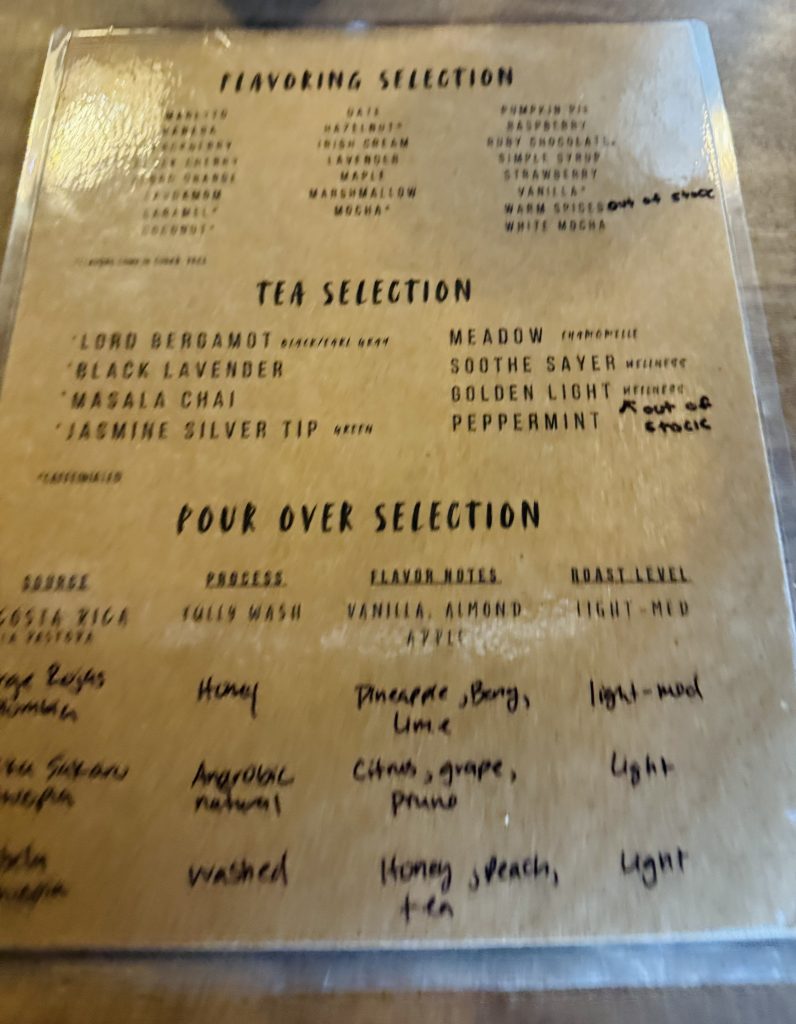 FLAVORING SELECTION
AMARETTO
BANANA
BLACKBERRY
BLACK CHERRY
BLOOD ORANGE
CARDAMOM
CARAMEL*
COCONUT*
DATE
HAZELNUT*
IRISH CREAM
LAVENDER
MAPLE
MARSHMALLOW
MOCHA*
PUMPKIN PIE
RASPBERRY
RUBY CHOCOLATE
SIMPLE SYRUP
STRAWBERRY
VANILLA*
WARM SPICES out of stock
WHITE MOCHA
TEA SELECTION
*LORD BERGAMOT BLACK/EARL GRAY
*BLACK LAVENDER
*MASALA CHAI
*JASMINE SILVER TIP GREEN
MEADOW CHAMOMILE
SOOTHE SAYER WELLNESS
GOLDEN LIGHT WELLNESS
PEPPERMINT ↖ out of
stock
*CAFFEINATED
POUR OVER SELECTION
SOURCE PROCESS FLAVOR NOTES ROAST LEVEL
COSTA RICA FULLY WASH VANILLA, ALMOND LIGHT-MED
LA PASTORA APPLE
Rojas Honey Pineapple, Berry, light-med
Lime
Anaerobic Citrus, grape, Light
natural prune
Washed Honey, peach, Light
tea